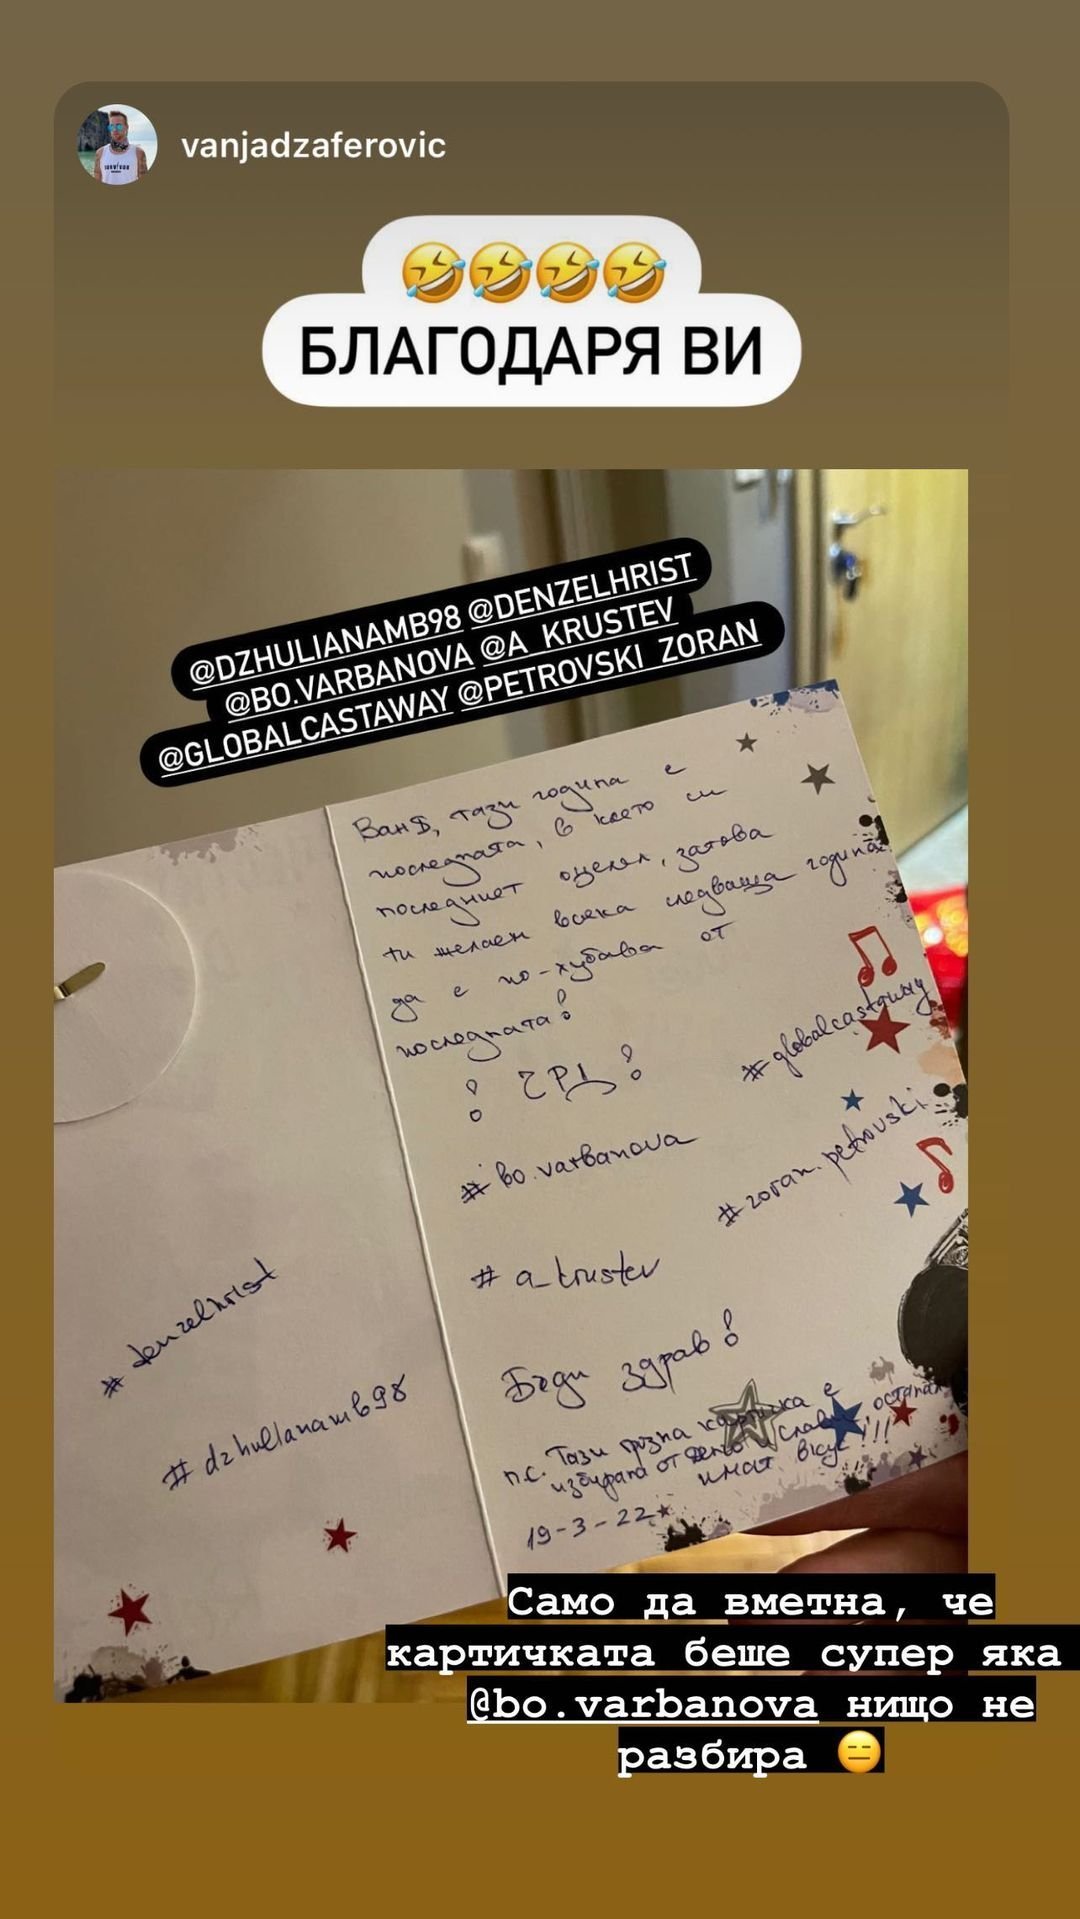 vanjadzaferovic
🤣🤣🤣🤣
БЛАГОДАРЯ ВИ
@DZHULIANAMB98 @DENZELHRIST
@BO.VARBANOVA @A_KRUSTEV
@GLOBALCASTAWAY @PETROVSKI_ZORAN
тази година е
последната, в която си
последният оцелял, затова
ти желаем всяка следваща година
да е по-хубава от
последната!
! ЧРД!
#globalcastaway
#bo.varbanova
#zoran.petrovski
#a_krustev
#denzelhrist
#dzhulianamb98
Бъди здрав!
п.с. Тази грозна картичка е
избирана от и Слави, останал
имат вкус!!!
19-3-22
Само да вметна, че
картичката беше супер яка
@bo.varbanova нищо не
разбира 😑